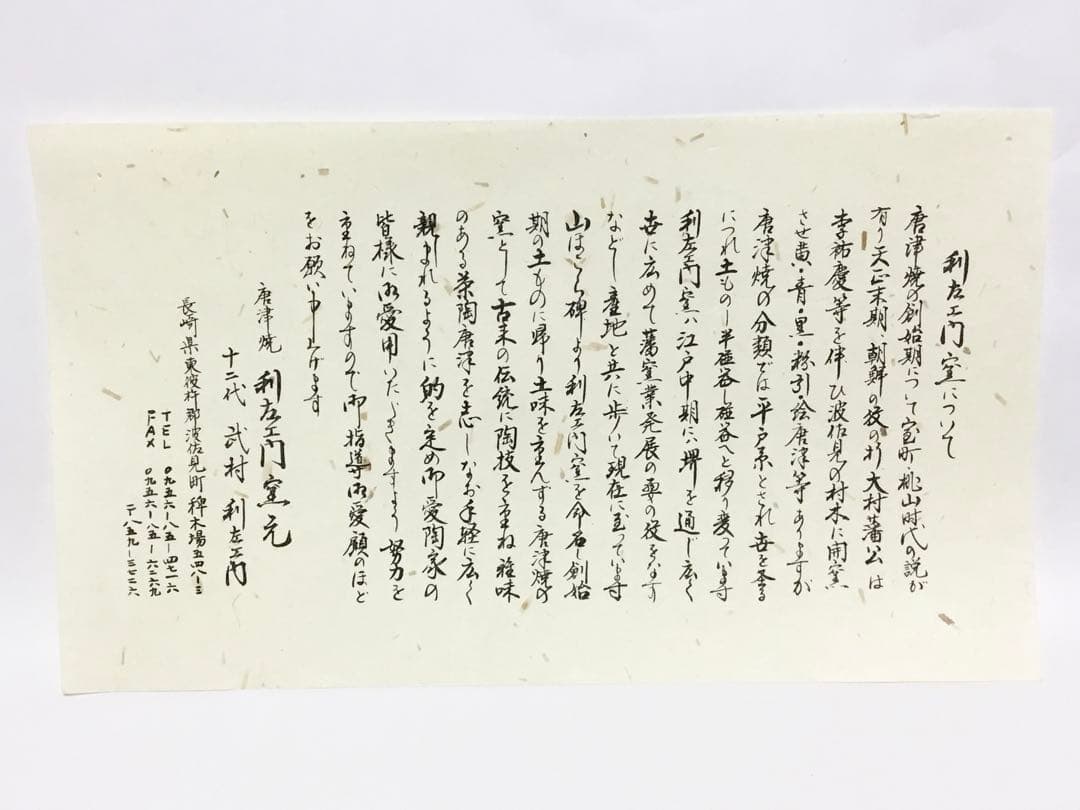 利左ェ門窯について
唐津焼の創始期について室町、桃山時代の説が
有り天正末期、朝鮮の役の折大村藩公は
李祐慶等を伴ひ波佐見の村木に開窯
させ黄・青・黒・粉引・絵唐津等ありますが
唐津焼の分類では平戸系とされ世を経る
につれ土もの－半磁器－磁器へと移り変っています
利左ェ門窯ハ江戸中期に、堺を通じ広く
世に広めて藩窯業発展の要の役をなす
などし産地と共に歩いて現在に至っています
山ほこら碑より利左ェ門窯を命名し創始
期の土ものに帰り土味を重んずる唐津焼の
窯として古来の伝統に陶技を重ね雅味
のある茶陶唐津を志しなお手軽に広く
親しまれるように的を定め御愛陶家の
皆様に御愛用いただきますよう努力を
重ねていますので御指導御愛顧のほど
をお願い申し上げます
唐津焼 利左ェ門窯元
十二代 武村利左ェ門
長崎県東彼杵郡波佐見町稗木場五四八－三
TEL ０九五六－八五－四七一六
FAX ０九五六－八五－六二六九
〒八五九－三七二六